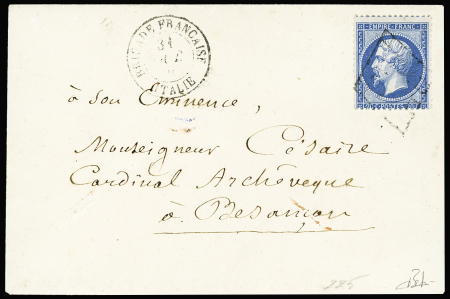 BRIGADE FRANÇAISE
31
D'ITALIE
EMPIRE FRANC
20 C POSTES 20 C
à Son Eminence,
Monseigneur Césaire
Cardinal Archévêque
à Besançon
225